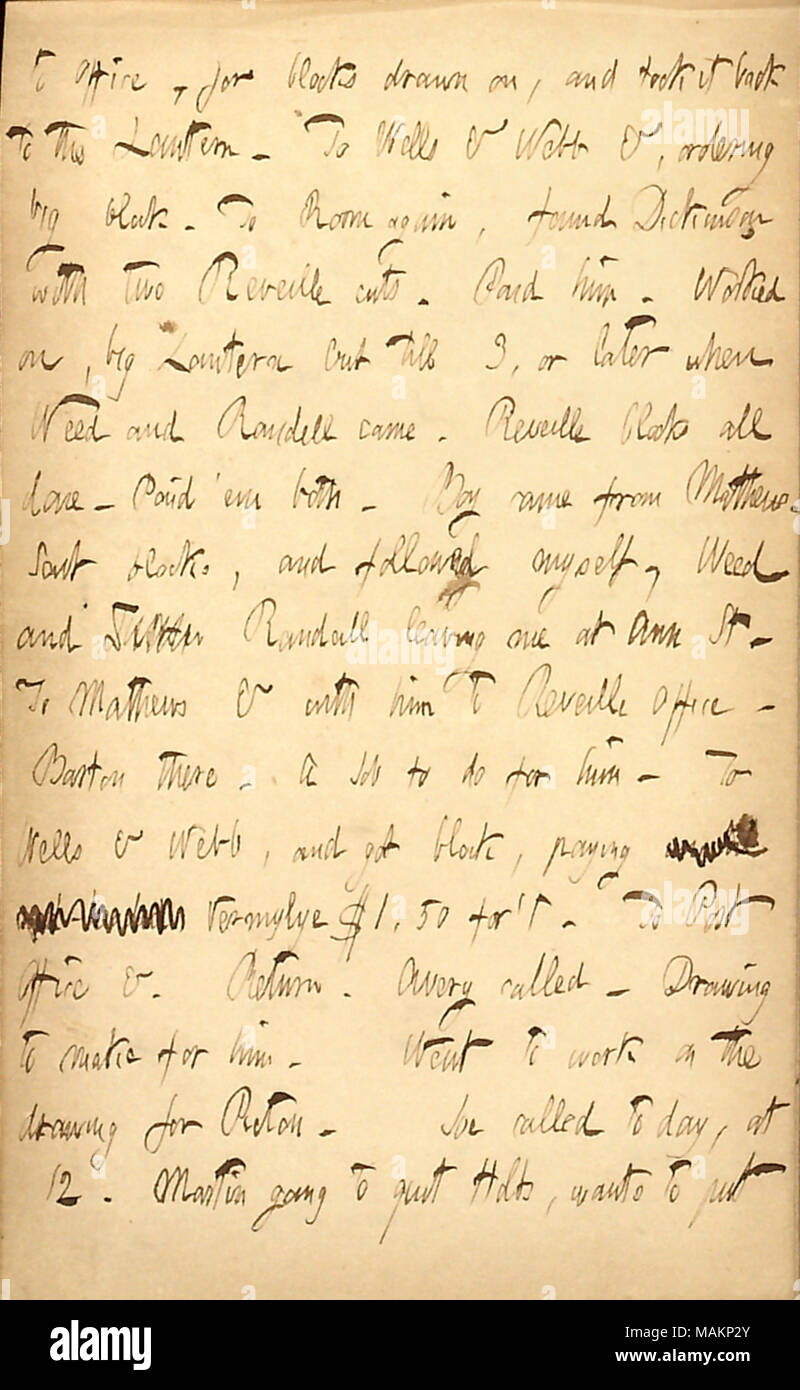 to Office, for blocks drawn on, and took it back
to the Lantern. To Wells & Webb &, ordering
big block. To Room again, found Dickinson
with two Reveille cuts. Paid him. Worked
on, big Lantern Cut till 3, or later when
Weed and Randell came. Reveille blocks all
done — Paid 'em both — Boy came from Mathews.
Sent blocks, and followed myself, Weed
and Randall leaving me at Ann St —
To Mathews & with him to Reveille Office —
Barton there. A job to do for him — To
Wells & Webb, and got block, paying
Vermylye $1.50 for't — To Post
Office &. Return. Avery called — Drawing
to make for him. Went to work on the
drawing for Picton — Joe called to day, at
12. Martin going to quit Holts, wants to put
alamy
Image ID: MAKP2Y
www.alamy.com